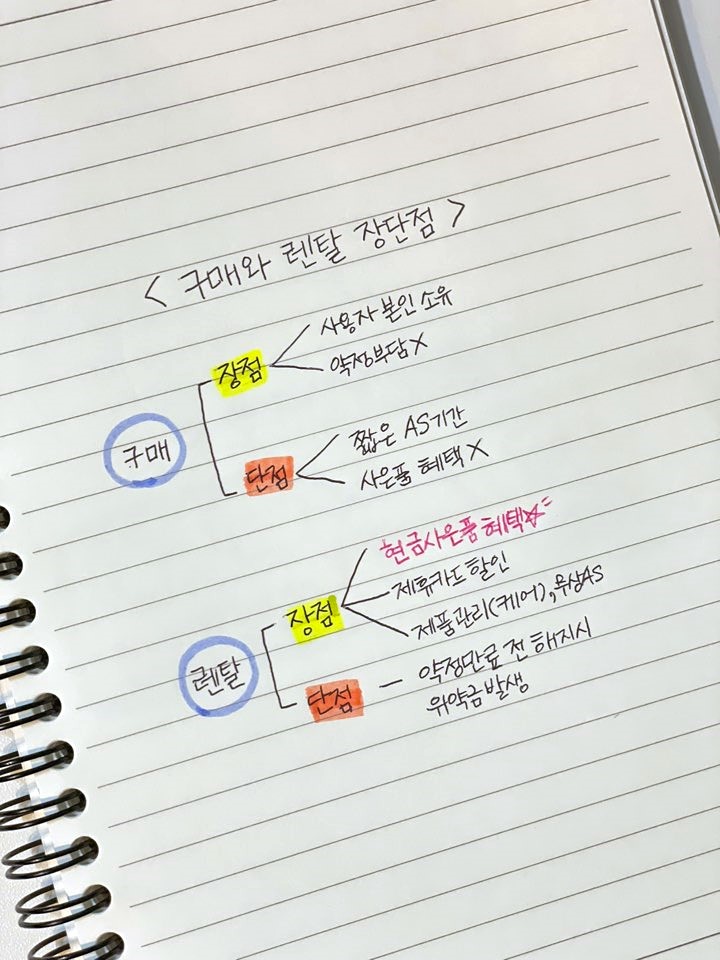 < 구매와 렌탈 장단점 >
구매
장점
사용자 본인 소유
약정부담 X
단점
짧은 AS기간
사은품 혜택 X
렌탈
장점
현금사은품 혜택☆
제휴카드 할인
제품관리(케어), 무상AS
단점 — 약정만료 전 해지시
위약금 발생